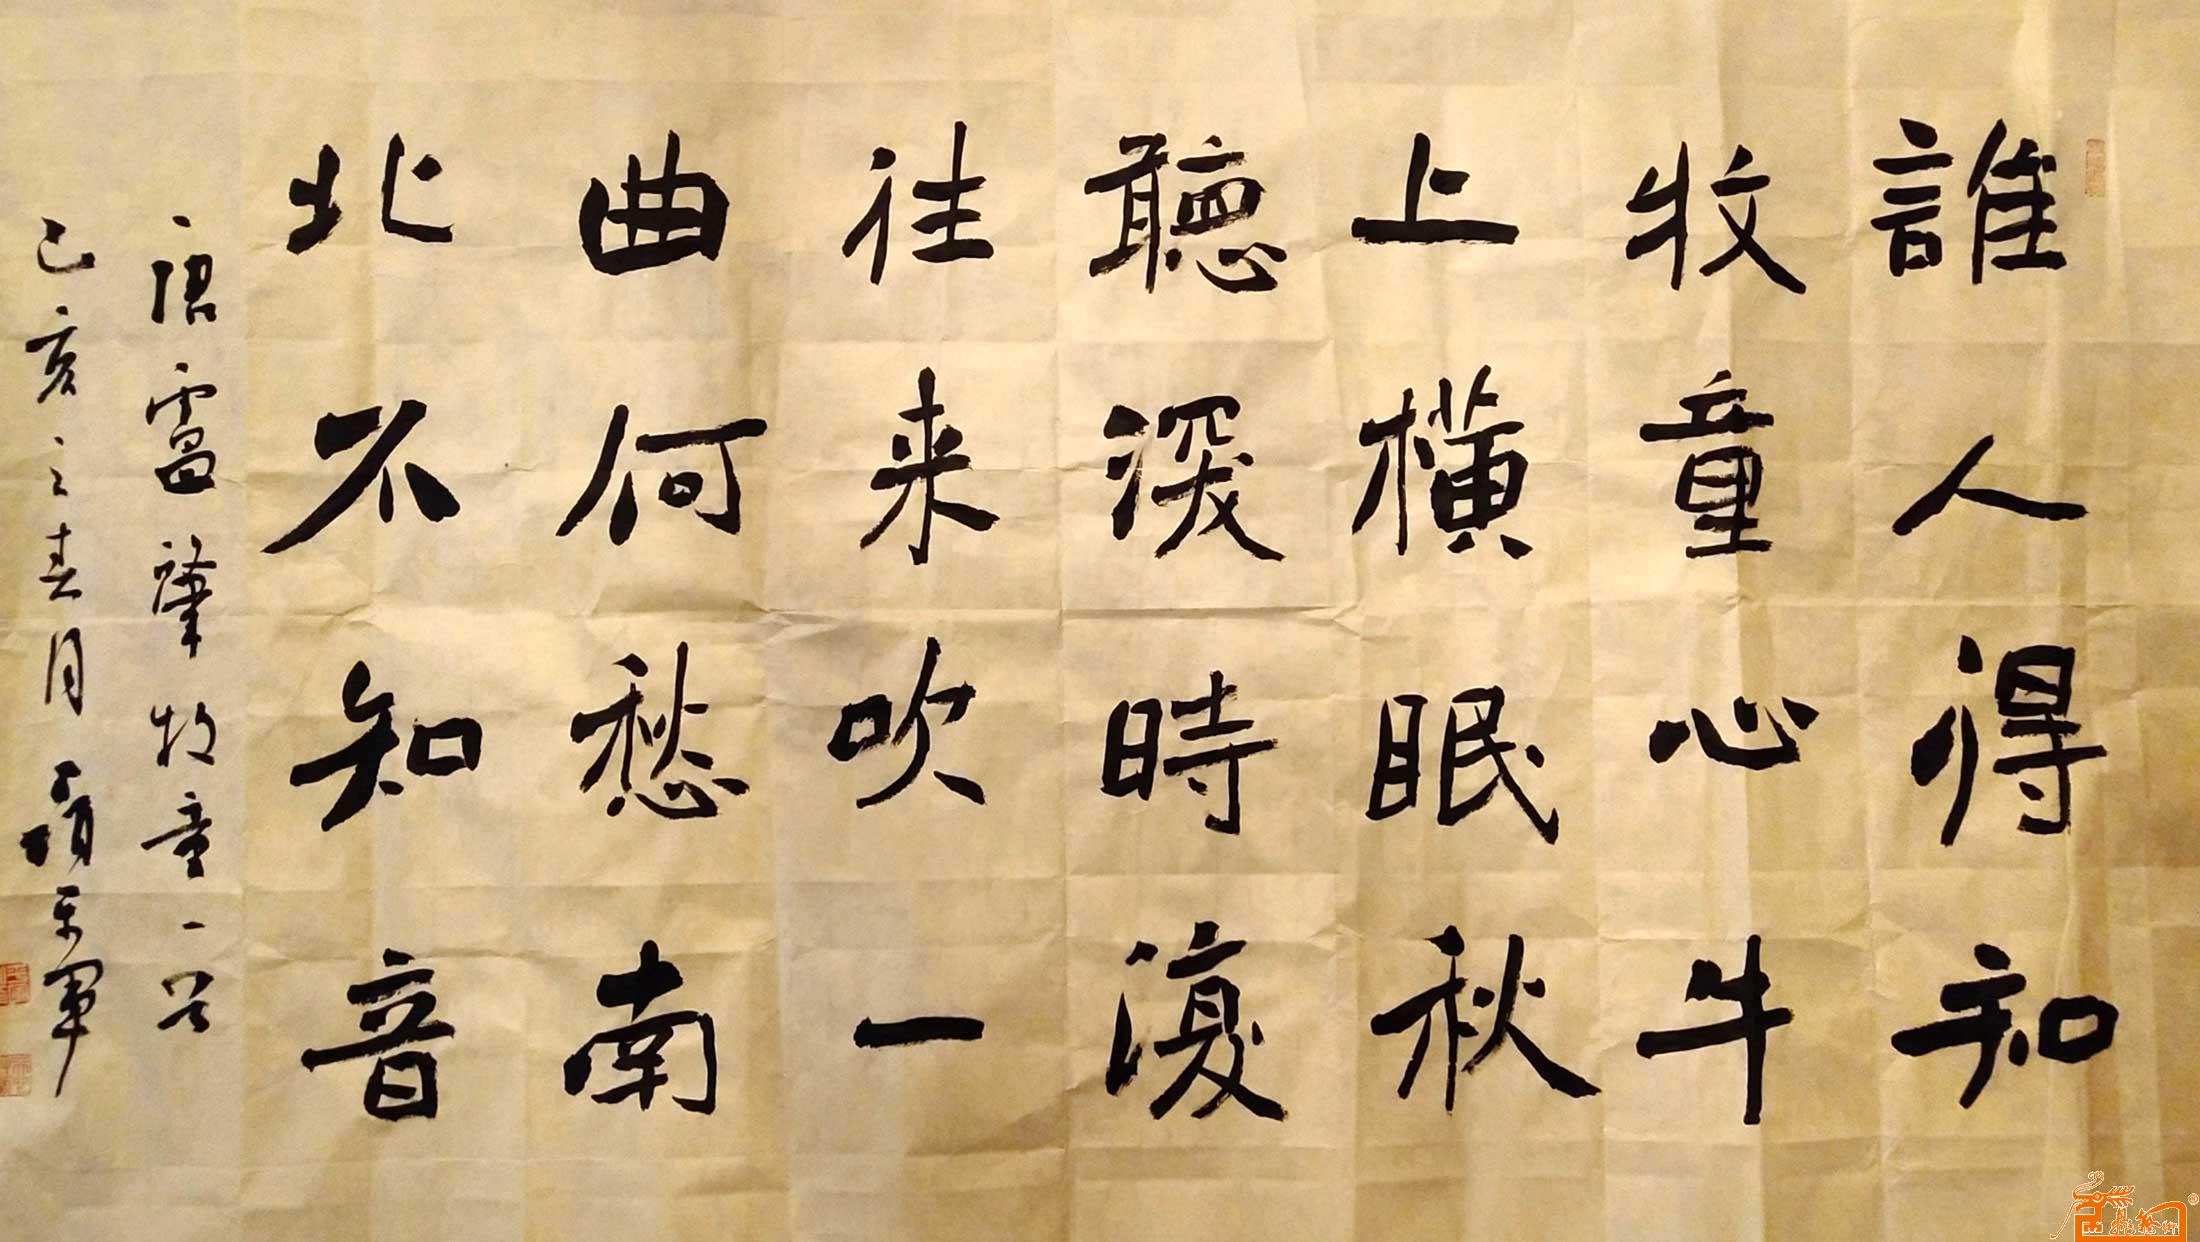 誰人得知
牧童心牛
上橫眠秋
聽深時復
往来吹一
曲何愁南
北不知音
唐盧肇牧童一首
己亥之春月